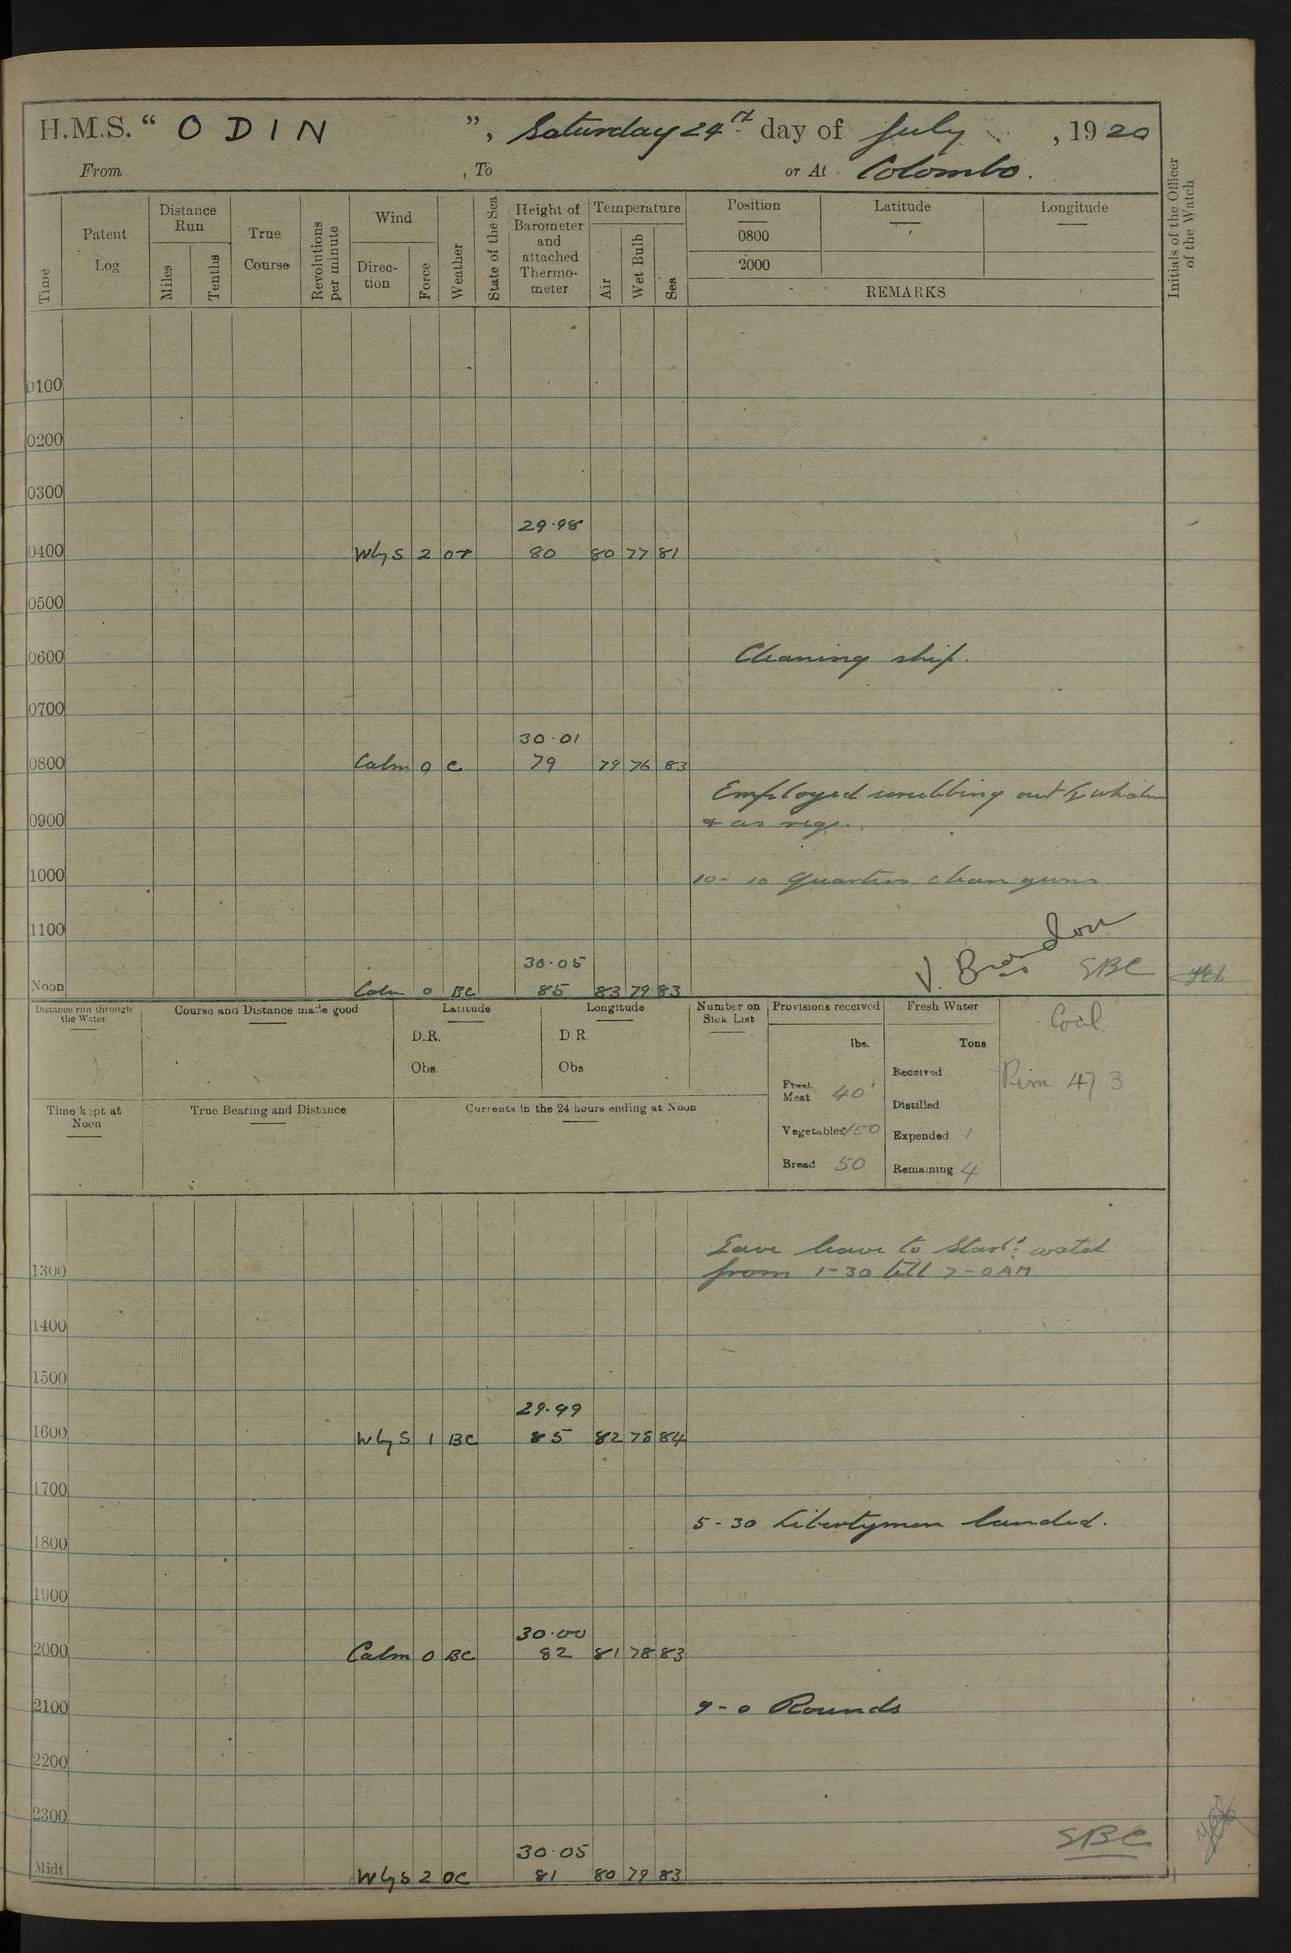 H.M.S. “ ODIN ”, Saturday 24th day of July , 1920
From , To or At Colombo.
Time
Patent Log
Distance Run
Miles
Tenths
True Course
Revolutions per minute
Wind
Direc-tion
Force
Weather
State of the Sea
Height of Barometer and attached Thermo-meter
Temperature
Air
Wet Bulb
Sea
Position Latitude Longitude
0800
2000
REMARKS
Initials of the Officer of the Watch
0100
0200
0300
29.98
0400 W by S 2 or 80 80 77 81
0500
0600 Cleaning ship.
0700
30.01
0800 Calm 0 C 79 79 76 83
Employed scrubbing out
0900 & as req.
1000 10-10 Quarters clean guns
1100
V. Brandon
30.05 SBC
Noon Calm 0 BC 85 83 79 83
Distance run through the Water
Course and Distance made good
Latitude
D.R.
Obs.
Longitude
D.R.
Obs
Number on Sick List
Provisions received
lbs.
Fresh Meat 40
Vegetables 100
Bread 50
Fresh Water
Tons
Received
Distilled
Expended 1
Remaining 4
Coal
Rem 473
Time kept at Noon
True Bearing and Distance
Currents in the 24 hours ending at Noon
Gave leave to Starb: watch
1300 from 1-30 till 7-0 AM
1400
1500
29.99
1600 W by S 1 BC 85 82 78 84
1700
5-30 Libertymen landed.
1800
1900
30.00
2000 Calm 0 BC 82 81 78 83
2100 9-0 Rounds
2200
2300
SBC
30.05
Midt W by S 2 OC 81 80 79 83